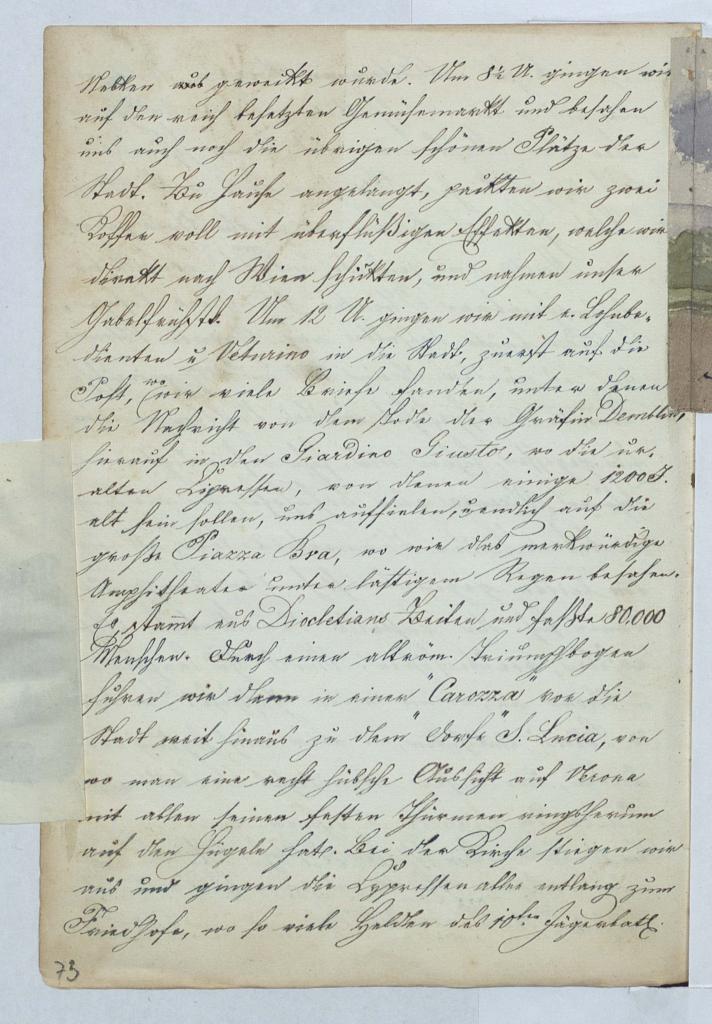 Nelken aus geweckt wurde. Um 8½ U. gingen wir
auf den reich besetzten Gemüsemarkt und besahen
uns auch noch die übrigen schönen Plätze der
Stadt. Zu Hause angelangt, packten wir zwei
Koffer voll mit überflüßigen Effekten, welche wir
direkt nach Wien schickten, und nahmen unser
Gabelfrühst. Um 12 U. gingen wir mit e. Lohnbe-
dienten u Veturino in die Stadt, zuerst auf die
Post, wo wir viele Briefe fanden, unter denen
die Nachricht von dem Tode der Gräfin
hierauf in den Giardino Giusto, wo die ur-
alten Cipressen, von denen einige 1200 J.
alt sein sollen, uns auffielen, endlich auf die
große Piazza Bra, wo wir das merkwürdige
Amphitheater unter lästigem Regen besahen.
Es stammt aus Diocletians Zeiten und faßte 80.000
Menschen. Durch einen altröm. Triumphbogen
fuhren wir dann in einer "Carozza" vor die
Stadt weit hinaus zu dem Dorfe "S. Lucia, von
wo man eine recht hübsche Aussicht auf Verona
mit allen seinen festen Thürmen ringsherum
auf den Hügeln hat. Bei der Kirche stiegen wir
aus und gingen die Cypressenallee entlang zum
Friedhofe, wo so viele Helden des 10ten Jägerbatl.
73